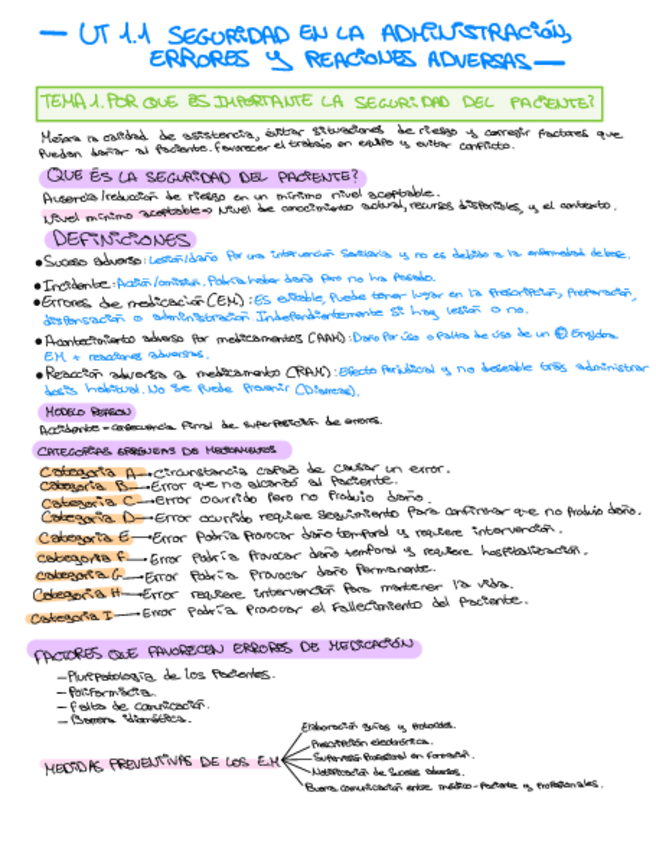 — UT 1.1 SEGURIDAD EN LA ADMINISTRACIÓN,
ERRORES Y REACIONES ADVERSAS —
TEMA 1. POR QUE ES IMPORTANTE LA SEGURIDAD DEL PACIENTE?
Mejora la calidad de asistencia, evitar situaciones de riesgo y corregir factores que
puedan dañar al paciente. Favorecer el trabajo en equipo y evitar conflicto.
QUE ÉS LA SEGURIDAD DEL PACIENTE?
Ausencia/reducción de riesgo en un mínimo nivel aceptable.
Nivel mínimo aceptable → Nivel de conocimiento actual, recursos disponibles, y el contexto.
DEFINICIONES
• Suceso adverso: Lesión/daño por una intervención sanitaria y no es debido a la enfermedad de base.
• Incidente: Acción/omisión. Podría haber daño pero no ha pasado.
• Errores de medicación (EM): ES evitable, puede tener lugar en la prescripción, preparación,
dispensación o administración Independientemente si hay lesión o no.
• Acontecimiento adverso por medicamentos (AAM): Daño por uso o falta de uso de un
EM + reacciones adversas.
• Reacción adversa a medicamento (RAM): Efecto perjudicial y no deseable tras administrar
dosis habitual. No se puede prevenir (Diarreas).
MODELO REASON
Accidente - consecuencia final de superposición de errores.
CATEGORÍAS DE MEDICAMENTOS
Categoria A → Circunstancia capaz de causar un error.
Categoria B → Error que no alcanzó al paciente.
Categoria C → Error ocurrido pero no produjo daño.
Categoria D → Error ocurrido requiere seguimiento para confirmar que no produjo daño.
Categoria E → Error podría provocar daño temporal y requiere intervención.
Categoria F → Error podría provocar daño temporal y requiere hospitalización.
Categoria G → Error podría provocar daño permanente.
Categoria H → Error requiere intervención para mantener la vida.
Categoria I → Error podría provocar el fallecimiento del paciente.
FACTORES QUE FAVORECEN ERRORES DE MEDICACIÓN
— Pluripatología de los pacientes.
— Polifarmàcia.
— Falta de comunicación.
— Barrera idiomática.
MEDIDAS PREVENTIVAS DE LOS E.M
Elaboración guías y protocolos.
Prescripción electrónica.
Supervisión profesional en formación.
Notificación de sucesos adversos.
Buena comunicación entre médico-paciente y profesionales.